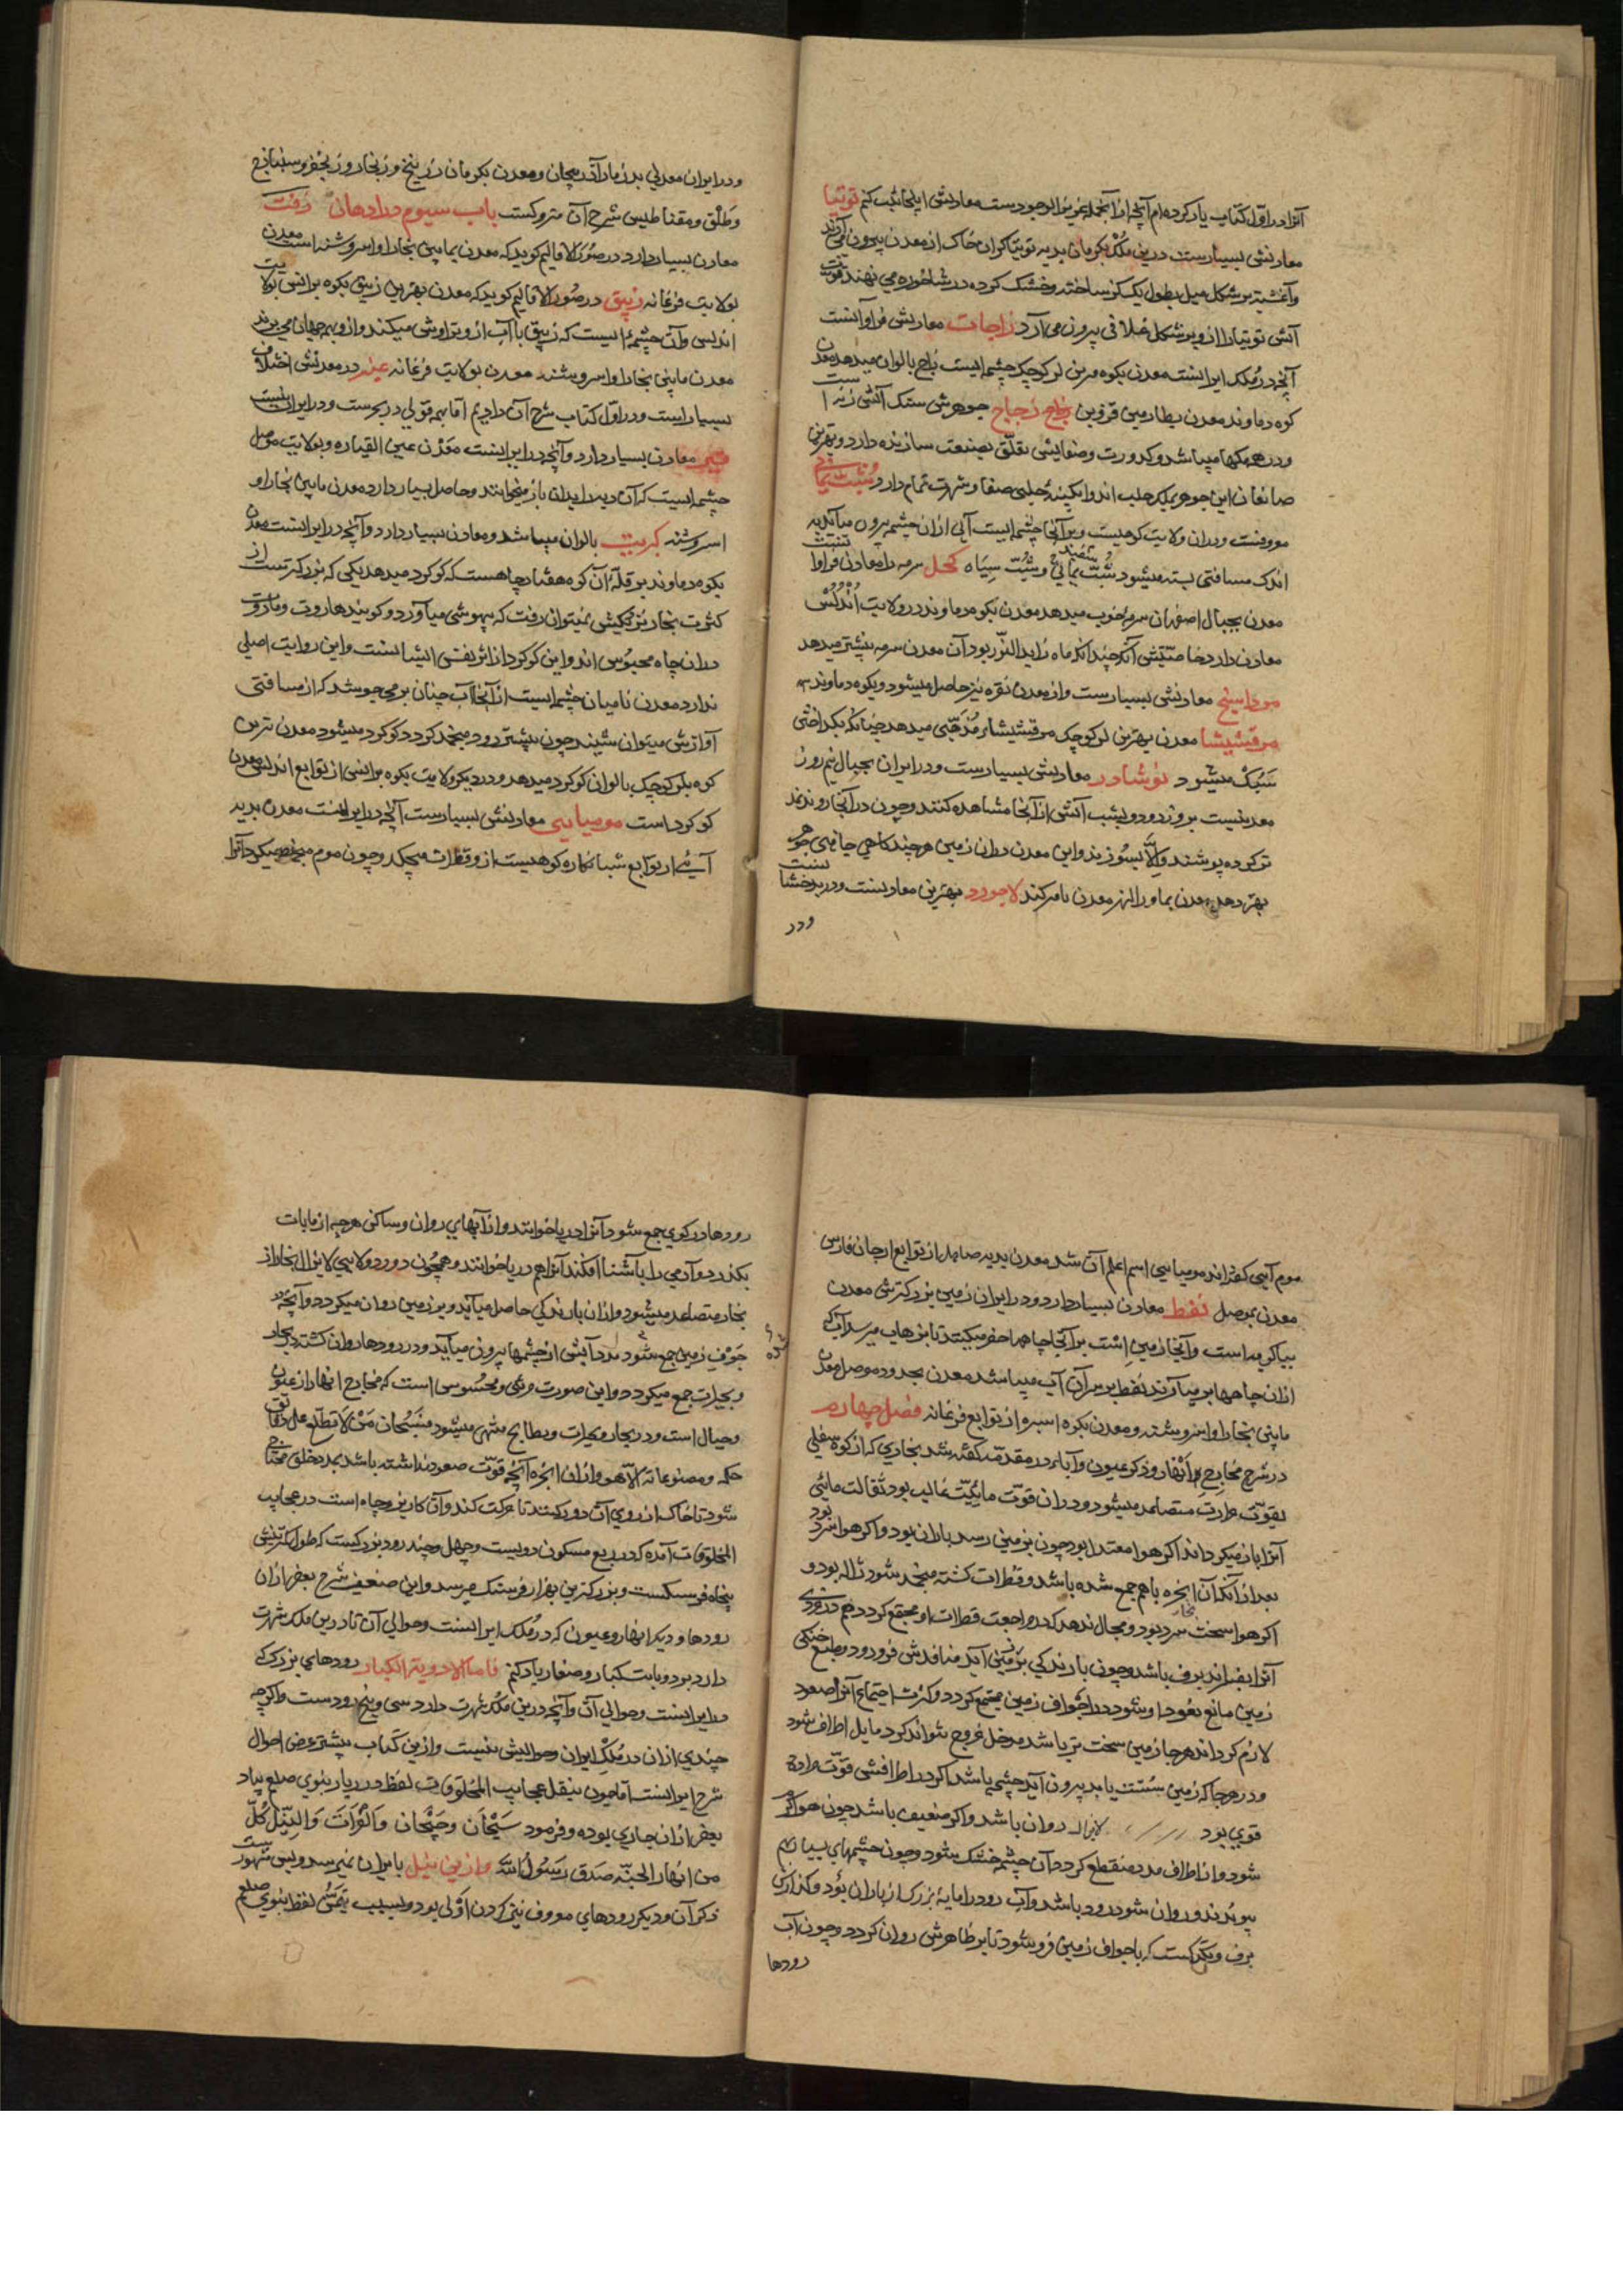 آنرا در اوّل کتاب یاد کرده‌ام آنچه از آنجمله عزیز الوجودست معادنش اینجا ثبت کنم توتیا
معادنش بسیارست درین ملک بکرمان بدیه توتیاکران خاک از معدن بیرون می‌آورند
و آغشته بر شکل میل بطول یک گز ساخته و خشک کرده در شاخوره می نهند قوت
آتش توتیا را ازو بر شکل غلافی بیرون می آرد زاجات معادنش فراوانست
آنچه در ملک ایرانست معدن بکوه مزین لر کوچک چشمه ایست زاج بالوان میدهد معدن
کوه دماوند معدن بطارمین قزوین زجاج جوهرش سنک آتش زنه است
و در همه کهها میباشد و کدورت و صفایش تعلّق بصنعت سازنده دارد و بهترین
صانعان این جوهر بملک حلب اند و آبکینه حلبی صفا و شهرت تمام دارد شبّ یمانی
معروفست و دران ولایت کوهیست و برآنجا چشمه ایست آبی ازان چشمه بیرون میآید به
اندک مسافتی بسته میشود شبّ یمانی سفید و شبّ سیاه کحل سرمه را معادن فراوانست
معدن بجبال اصفهان سرمه خوب میدهد معدن بکوه دماوند در ولایت اندلس
معادن دارد خاصیّتش آنکه چندانکه ماه زاید النّور بود آن معدن سرمه بیشتر میدهد
مرداسنج معادنش بسیارست و از معدن نقره نیز حاصل میشود و بکوه دماوند
مرقشیشا معدن بهترین لر کوچک مرقشیشاء مذهّبی میدهد چنانکه بکداختن
سبک میشود نوشادر معادنش بسیارست و در ایران بجبال نیم روز
معدنیست بروز دود و بشب آتش از آنجا مشاهده کنند و چون در آنجا روند نمد
تر کرده پوشند والّا بسوزند و این معدن دران زمین هر چند کاهی جا بهی جوهر
بهتر دهد معدن بماوراالنهر معدن بامرکند لاجورد بهترین معادنست و در بدخشانست
و در
و در ایران معدنی بدزمار آذربیجان و معدن بکرمان زرنیخ و زنجار و زنجفر و سنباذج
و طلق و مقناطیس شرح آن متروکست باب سیوم در ادهان زفت
معادن بسیار دارد در صور الاقالیم کوید که معدن بمابین بخارا و اسروشنه است معدن
بولایت فرغانه زیبق در صور الاقالیم کوید که معدن بهترین زیبق بکوه برانس بولایت
اندلس و آن چشمه ایست که زیبق با آب ازو تراوش میکند و ازو بهمه جهان می برند
معدن مابین بخارا و اسروشنه معدن بولایت فرغانه عنبر در معدنش اختلاف
بسیار است و در اوّل کتاب شرح آن دادیم امّا بهمه قولی در بحرست و در ایران نیست
قیر معادن بسیار دارد و آنچه در ایرانست معدن عین القیاره و بولایت موصل
چشمه ایست که آن دیه را بدان باز میخوانند و حاصل بسیار دارد معدن مابین بخارا و
اسروشنه کبریت بالوان میباشد و معادن بسیار دارد و آنچه در ایرانست معدن
بکوه دماوند بر قلّه آن کوه هفتاد چاهست که کوکرد میدهد یکی که بزرکترست از
کثرت بخار نزدیکش نمیتوان رفت که بیهوشی میآورد و کویند هاروت و ماروت
دران چاه محبوس اند و این کوکرد از اثر نفس ایشانست و این روایت اصلی
ندارد معدن نامیان چشمه ایست از آنجا آب چنان بر می جوشد که از مسافتی
آوازش میتوان شنید چون بیشتر رود منجمد کردد کوکرد میشود معدن مزین
کوه بلر کوچک بالوان کوکرد میدهد و در دیکر ولایت بکوه برانس از توابع اندلس معدن
کوکرد است مومیایی معادنش بسیارست آنچه در ایرانست معدن بدیه
آبی از توابع شبانکاره کوهیست ازو قطرات میچکد و چون موم منجمد میکردد آنرا
موم آبی کفته‌اند مومیایی اسم اعلم آن شد معدن بدیه صاهل از توابع ارجان فارس
معدن بموصل نفط معادن بسیار دارد و در ایران زمین بزرکترش معدن
بباکویه است و آنجا زمین است بر آنجا چاهها حفر میکنند تا بزهاب میرسد آب که
ازان چاهها بر میآرند نفط بر سر آن آب میباشد معدن بحدود موصل معدن
مابین بخارا و اسروشنه و معدن بکوه اسبره از توابع فرغانه فصل چهارم
در شرح مخارج انهار و ذکر عیون و آباء در مقدّمه کفته شد بخاری که از کره سفلی
بقوّت حرارت متصاعد میشود و دران قوّت مائیّت غالب بود ثقالت مائی
آنرا باز میکرداند اکر هوا معتدل بود چون بزمین رسد باران بود و اکر هوا سرد بود
بعد از آنکه آن ابخره باهم جمع شده باشد و قطرات کشته منجمد شود ژاله بود و
اکر هوا سخت سرد بود و مجال ندهد که در مراجعت قطرات او مجتمع کردد هم در زودی
آنرا بفسراند برف باشد و چون بارندکی بزمین آید در منافدش فرو رود و طبع خشکی
زمین مانع صعود او شود در اجواف زمین مجتمع کردد و کثرت اجتماع آنرا صعود
لازم کرداند هر جا زمین سخت تر باشد مدخل خروج نتواند کرد مایل اطراف شود
و در هر جا که زمین سست یابد بیرون آید چشمه باشد اکر در اطرافش قوّت مادّه
قوی بود لایزال روان باشد و اکر ضعیف باشد چون هوا کرم
شود و از اطراف مدد منقطع کردد آن چشمه خشک شود و چون چشمهای بسیار بهم
پیوندند و روان شود رود باشد و آب رود را مایه بزرک از باران بود و کدازش
برف و تکرکست که باجواف زمین فرو شود تا بر ظاهرش روان کردد و چون آب
رودها
رودها در کوی جمع شود آنرا دریا خوانند و از آبهای روان و ساکن هر چه از مابات
بکذرد و آدمی را باآشنا افکند آنرا هم دریا خوانند و همچون دور دولابی لایزال بخار از
بحار متصاعد میشود و ازان بارندکی حاصل میآید و بر زمین روان میکردد و آنچه در
جوف زمین جمع شود مدد آبش از چشمها بیرون میآید و در رودها روان کشته ببحار
و بحیرات جمع میکردد و این صورت مرئی و محسوس است که مخارج انهار از عیون
و جبال است و در بحار و بحیرات و بطایح منتهی میشود فسبحان من لا تطلع علی دقایق
حکمه و مصنوعاته الّا هو و ازان ابخره آنچه قوّت صعود نداشته باشد بمدد خلق محتاج
شود تا خاک از روی آن دور کنند تا حرکت کند و آن کاریز و چاه است در عجایب
المخلوقات آمده که در ربع مسکون دویست و چهل و چند رود بزرکست که طول کمترینش
پنجاه فرسنکست و بزرکترین بهزار فرسنک میرسد و این ضعیف شرح بعضی ازان
رودها و دیکر انهار و عیون که در ملک ایرانست و حوالی آن تا درین ملک شهرت
دارد بر دو بابت کبار و صغار یاد کنم فامّا الاودیة الکبار رودهای بزرک که
در ایرانست و حوالی آن و آنچه درین ملک شهرت دارد سی و پنج رودست و اکر چه
چندی ازان در ملک ایران و حوالیش نیست و ازین کتاب بیشتر غرض احوال
شرح ایرانست امّا چون بنقل عجایب المخلوقات لفظ درر بار نبوی صلعم بیاد
بعضی ازان جاری بوده و فرمود سیحان و جیحان و الفرات و النّیل کلّ
من انهار الجنّه صدق رسول الله و ازین نیل بایران نمیرسد و بس مشهورست
ذکر آن و دیکر رودهای معروف نبی کردن اوّلی بود و بسبب تیمّن لفظ نبوی صلعم